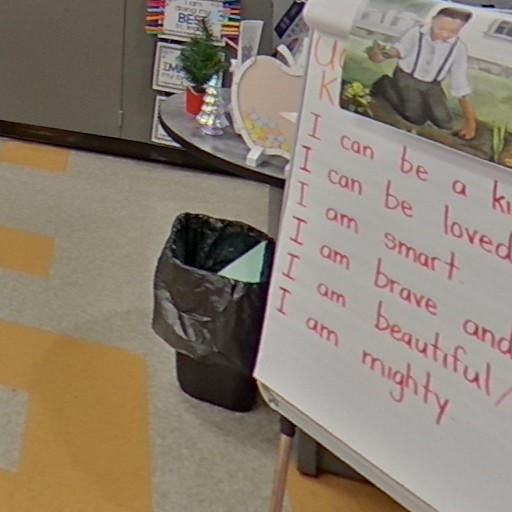 I am
doing my
BEST
U
K
I can be a ki
I can be loved
I am smart.
I am brave and
I am beautiful/
I am mighty.